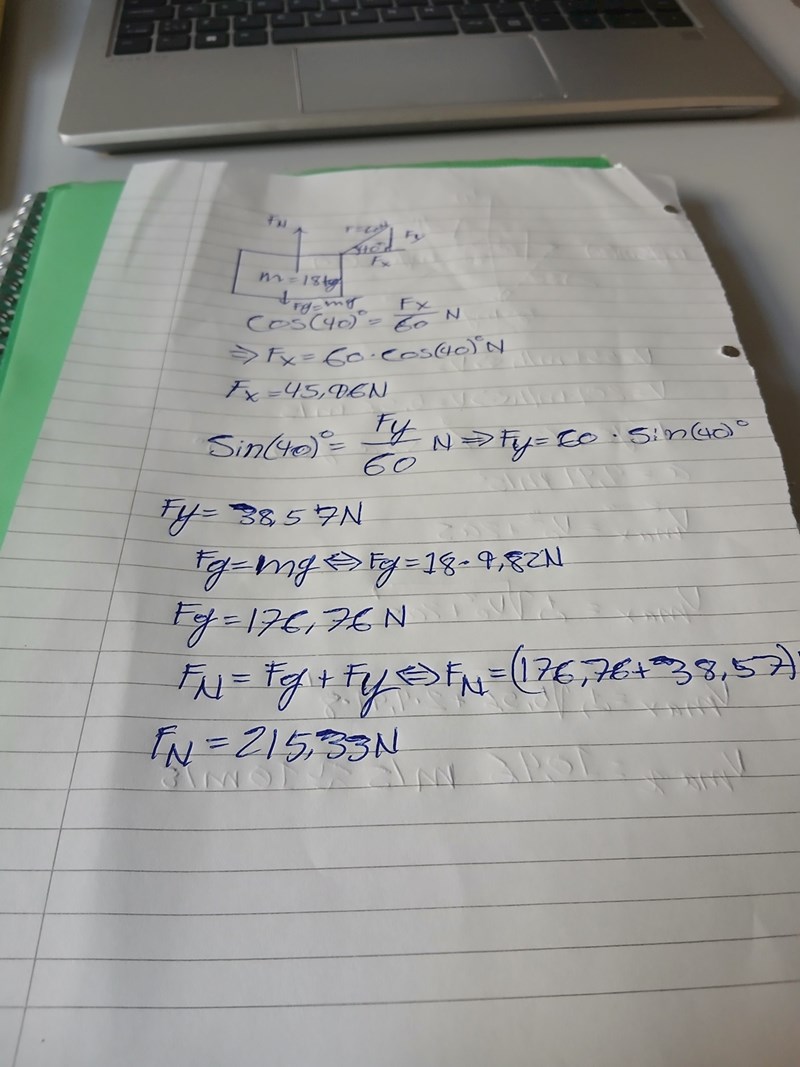 FN
F=60N
Fy
40°
Fx
m=18kg
Fg=mg
cos(40)° = Fx/60 N
⇒ Fx = 60·cos(40)° N
Fx = 45,96N
Sin(40)° = Fy/60 N ⇒ Fy = 60 · Sin(40)°
Fy = 38,57N
Fg = mg ⇔ Fg = 18·9,82N
Fg = 176,76 N
FN = Fg + Fy ⇔ FN = (176,76+38,57)
FN = 215,33N